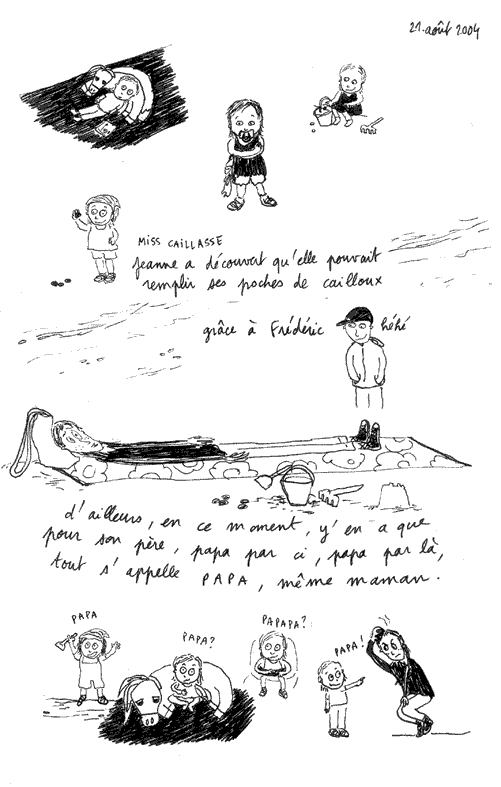 21. août 2004
MISS CAILLASSE
Jeanne a découvert qu'elle pouvait
remplir ses poches de cailloux
grâce à Frédéric
héhé
d'ailleurs, en ce moment, y'en a que
pour son père, papa par ci, papa par là,
tout s'appelle PAPA, même maman.
PAPA
PAPA?
PAPAPA?
PAPA!